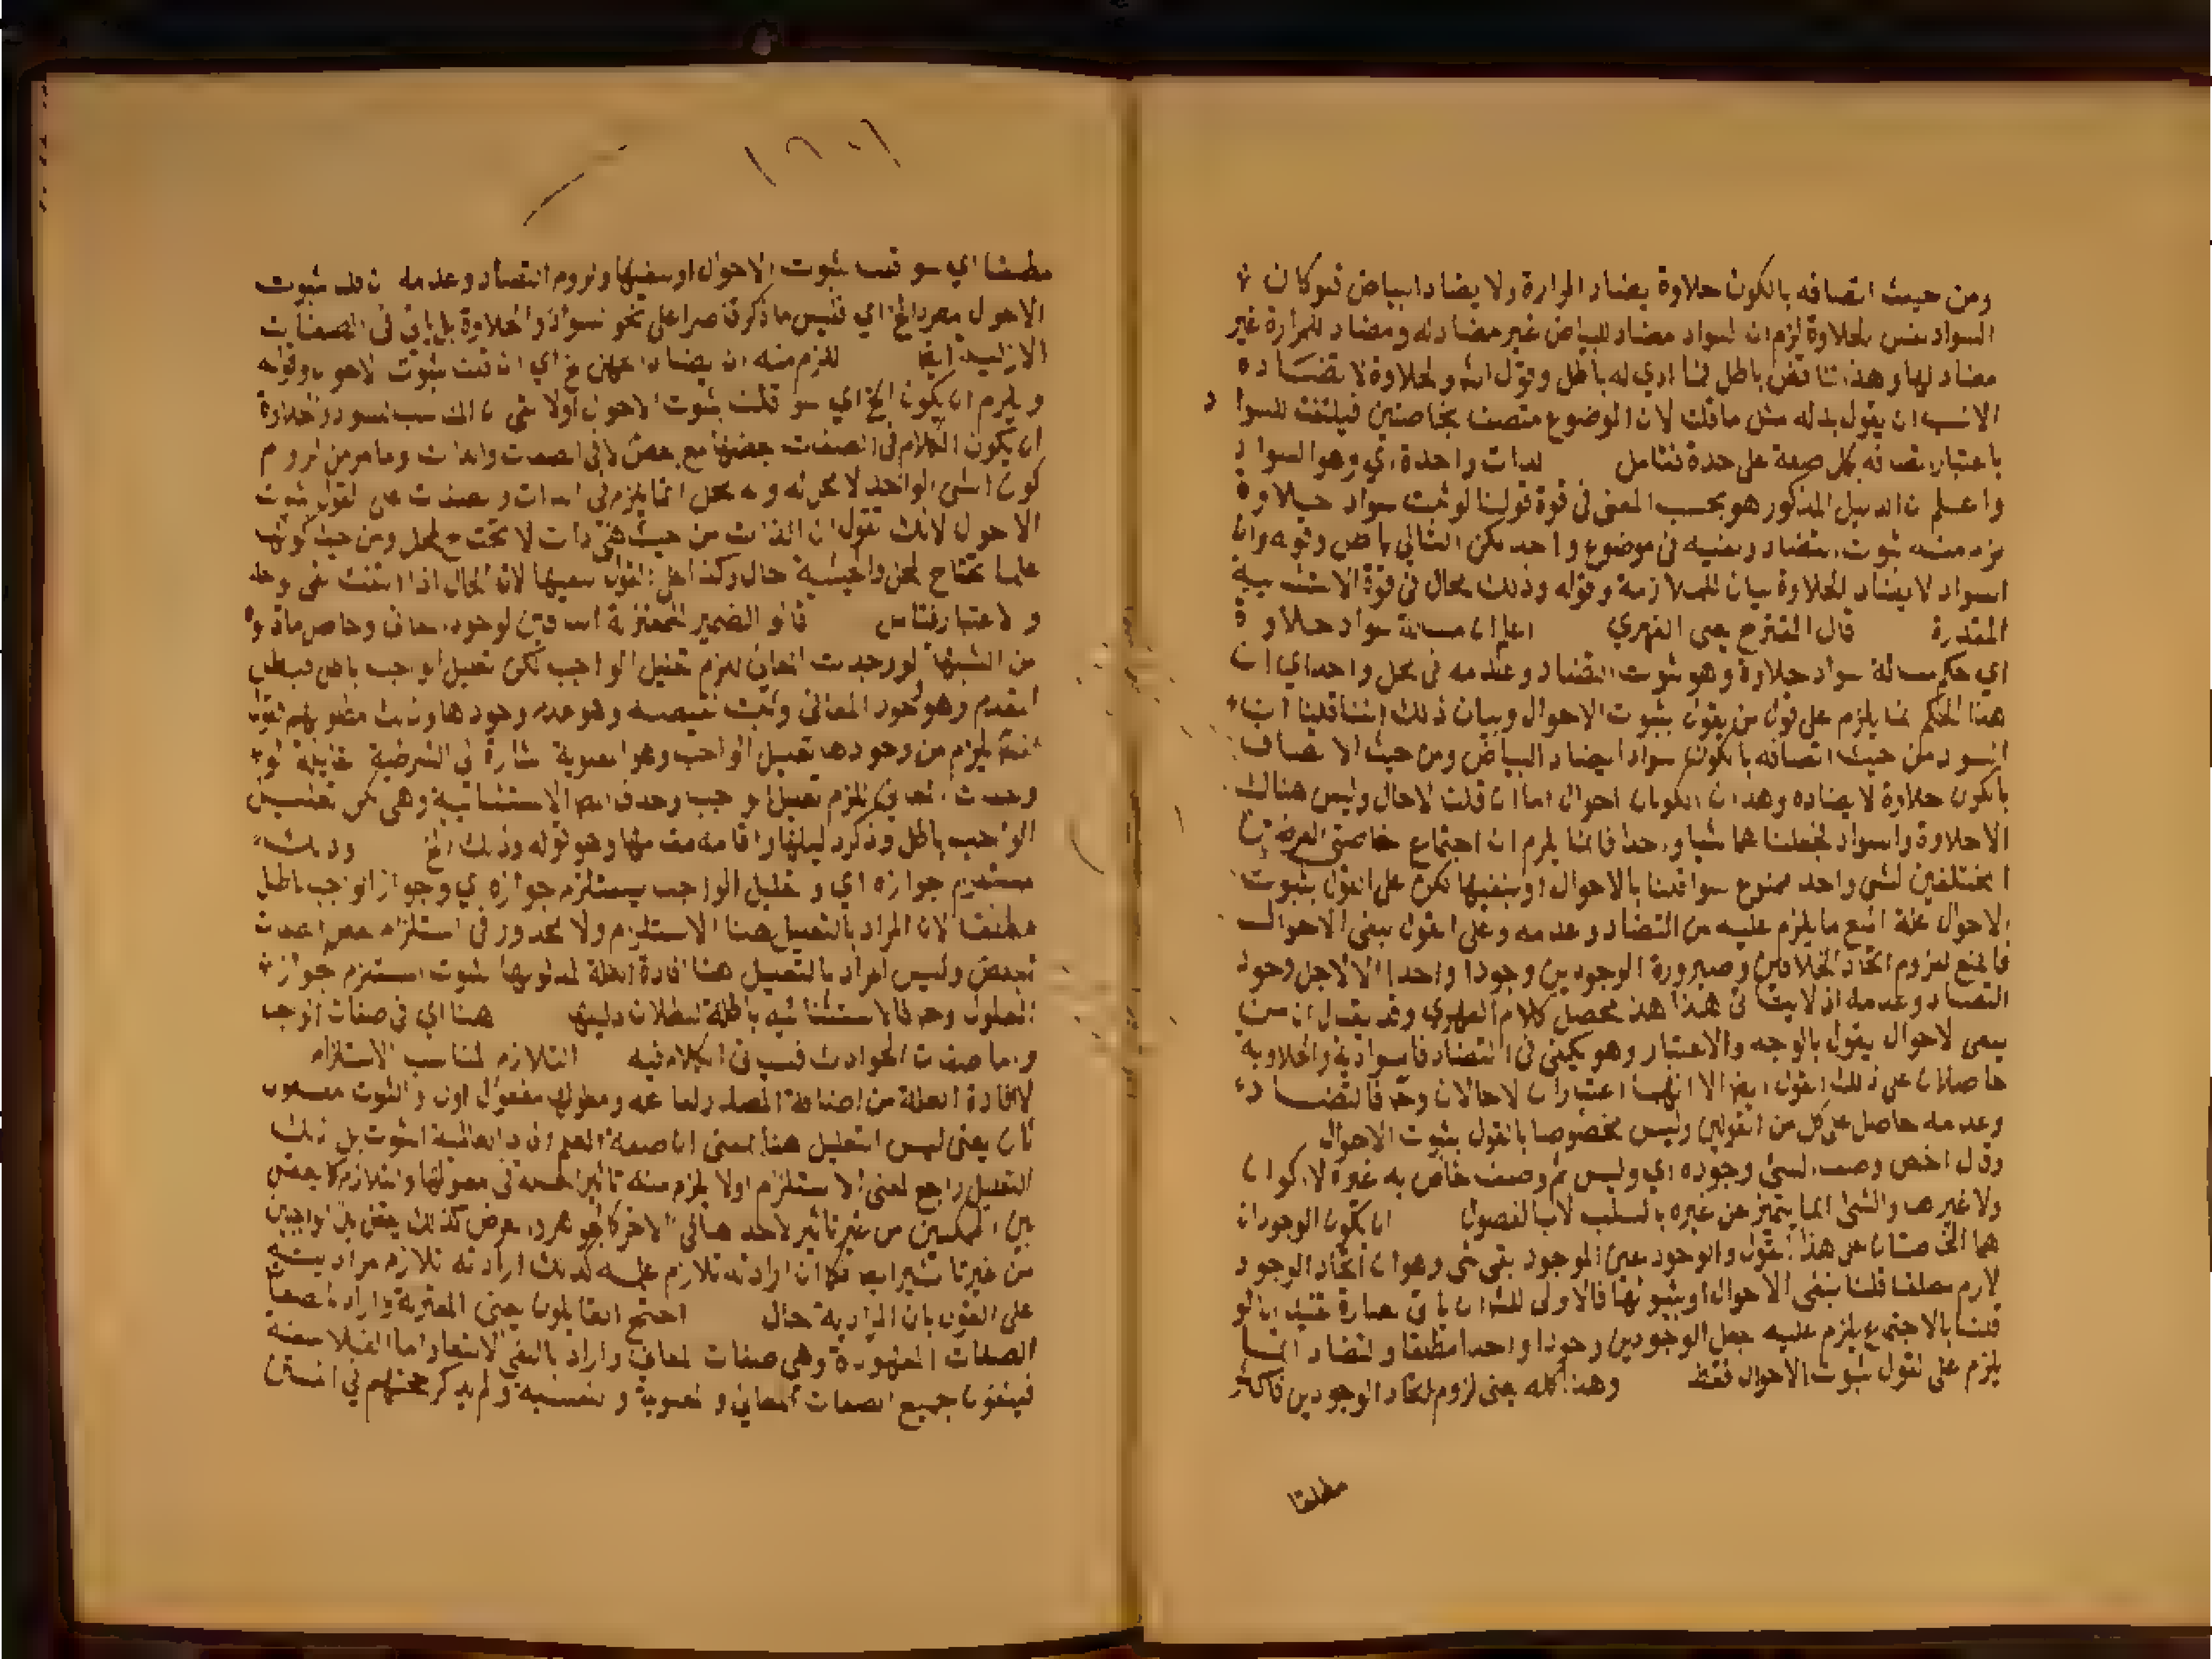 ومن حيث اتصافه بالكون حلاوة يضاد المرارة ولا يضاد البياض فلو كان
السواد نفس الحلاوة لزم ان السواد مضاد للبياض غير مضاد له ومضاد للمرارة غير
مضاد لها وهذا تناقض باطل فما ادي له باطل وقول الله والحلاوة لا تضاده
الانسب ان يقول بدله مثل ما قلت لان الموضوع متصف بخاصتين فيلتفت للسواد
باعتبار تصافه بكل صفة على حدة فتامل لذات واحدة اي وهو السواد
واعلم ان الدليل المذكور هو بحسب المعنى في قوة قولنا لو ثبت سواد حلاوة
لزم منه ثبوت التضاد ونفيه في موضوع واحد لكن التالي باطل وقوله وان
السواد لا يضاد الحلاوة بيان للملازمة وقوله وذلك محال في قوة الاستثنائية
المقدرة قال المقترح يعني الفهري اعلم ان مسالة سواد حلاوة
اي حكم مسالة سواد حلاوة وهو ثبوت التضاد وعدمه في محل واحد اي ان
هذا الحكم انما يلزم على قول من يقول بثبوت الاحوال وبيان ذلك اننا قلنا ان
السواد من حيث اتصافه بالكون سوادا يضاد البياض ومن حيث الاتصاف
بالكون حلاوة لا يضاده وهذان الكونان احوال اما ان قلت لا حال وليس هناك
الا حلاوة والسواد فجعلناهما شيا واحدا فانما يلزم ان اجتماع خاصتي العرضين
المختلفين لشي واحد ممنوع سوا قلنا بالاحوال او بنفيها لكن على القول بثبوت
الاحوال علة المنع ما يلزم عليه من التضاد وعدمه وعلى القول بنفي الاحوال
فالمنع للزوم اتحاد الخلافين وصيرورة الوجودين وجودا واحدا لا لاجل وجود
التضاد وعدمه اذ لا يتاتى هذا هذا محصل كلام الفهري وقد يقال ان من
ينفي الاحوال يقول بالوجه والاعتبار وهو يكفي في التضاد فالسوادية والحلاوية
حاصلان على ذلك القول ايضا الا انهما اعتباران لا حالان وح فالتضاد
وعدمه حاصل على كل من القولين وليس مخصوصا بالقول بثبوت الاحوال
وقال اخص وصف الشي وجوده اي وليس ثم وصف خاص به غيره لا اكوان
ولا غيرها والشي انما يتميز عن غيره بالسلب لا بالفصول ان يكون الوجودان
هما الخاصتان على هذا القول والوجود عين الموجود بقى شي وهو ان اتحاد الوجود
لازم مطلقا قلنا بنفي الاحوال او بثبوتها فالاولى للش ان ياتي بعبارة تفيد انا لو
قلنا بالاجتماع يلزم عليه جعل الوجودين وجودا واحدا مطلقا والتضاد انما
يلزم على القول بثبوت الاحوال فقط وهذا كله يعني لزوم اتحاد الوجودين فاكثر
مطلقا
مطلقا اي سوا قلت بثبوت الاحوال او بنفيها ولزوم التضاد وعدمه ان قلت بثبوت
الاحوال مطرد الخ اي فليس ما ذكر قاصرا على نحو السواد والحلاوة بل ياتي في الصفات
الازلية ايضا للزم منه ان يضاد الجهل الخ اي ان قلت بثبوت الاحوال وقوله
ويلزم ان يكون الخ اي سوا قلت بثبوت الاحوال اولا
ان يكون الكلام في الصفات بعضها مع بعض لا في الصفات والذات وما مر من لزوم
كون الشي الواحد لا محل له وله محل انما يلزم في الذات والصفات على القول بثبوت
الاحوال لانك تقول ان الذات من حيث هي ذات لا تحتاج لمحل ومن حيث كونها
علما تحتاج لمحل والحيثية حال وكذا على القول بنفيها لان الحال اذا انتفت بقى وجه
والاعتبار فتامل قالوا الضمير للمعتزلة النافين لوجود المعاني وحاصل ما قالوه
من الشبهة لو وجدت المعاني للزم تعليل الواجب لكن تعليل الواجب باطل فبطل
المقدم وهو وجود المعاني وثبت نقيضه وهو عدم وجودها وذلك مطلوبهم فقوله
يلزم من وجودها تعليل الواجب وهو المعنوية اشارة الى الشرطية
وجدت المعاني للزم تعليل الواجب وحذف الاستثنائية وهي لكن تعليل
الواجب باطل وذكر دليلها واقامه مقامها وهو قوله وذلك الخ وذلك
يستلزم جوازه اي وتعليل الواجب يستلزم جوازه اي وجواز الواجب باطل
مطلقا لان المراد بالتعليل هنا الاستلزام ولا محذور في استلزام بعض الصفات
لبعض وليس المراد بالتعليل هنا افادة العلة لمعلولها الثبوت المستلزم جواز
المعلول وح فالاستثنائية باطلة لبطلان دليلها هنا اي في صفات الواجب
واما صفات الحوادث فليس الكلام فيه التلازم المناسب الاستلزام
لا افادة العلة من اضافة المصدر لفاعله ومعلولها مفعول اول والثبوت مفعول
ثان يعني ليس التعليل هنا بمعنى ان صفة العلم افاد العالمية الثبوت بل ذلك
التعليل راجع لمعنى الاستلزام اولا يلزم منه تاثير العلة في معلولها والتلازم كما يعقل
بين الممكنين من غير تاثير لاحدهما في الاخر كالجوهر والعرض كذلك يعقل بين الواجبين
من غير تاثير ايضا فكما ان ارادته تلازم علمه كذلك ارادته تلازم مراديته
على القول بان المرادية حال احتج القايلون يعني المعتزلة واراد بالصفات
الصفات المعهودة وهي صفات المعاني واراد بالنفي الانتفاء اما الفلاسفة
فينفون جميع الصفات المعاني والمعنوية والنفسية ولم يذكر حجتهم في المتن